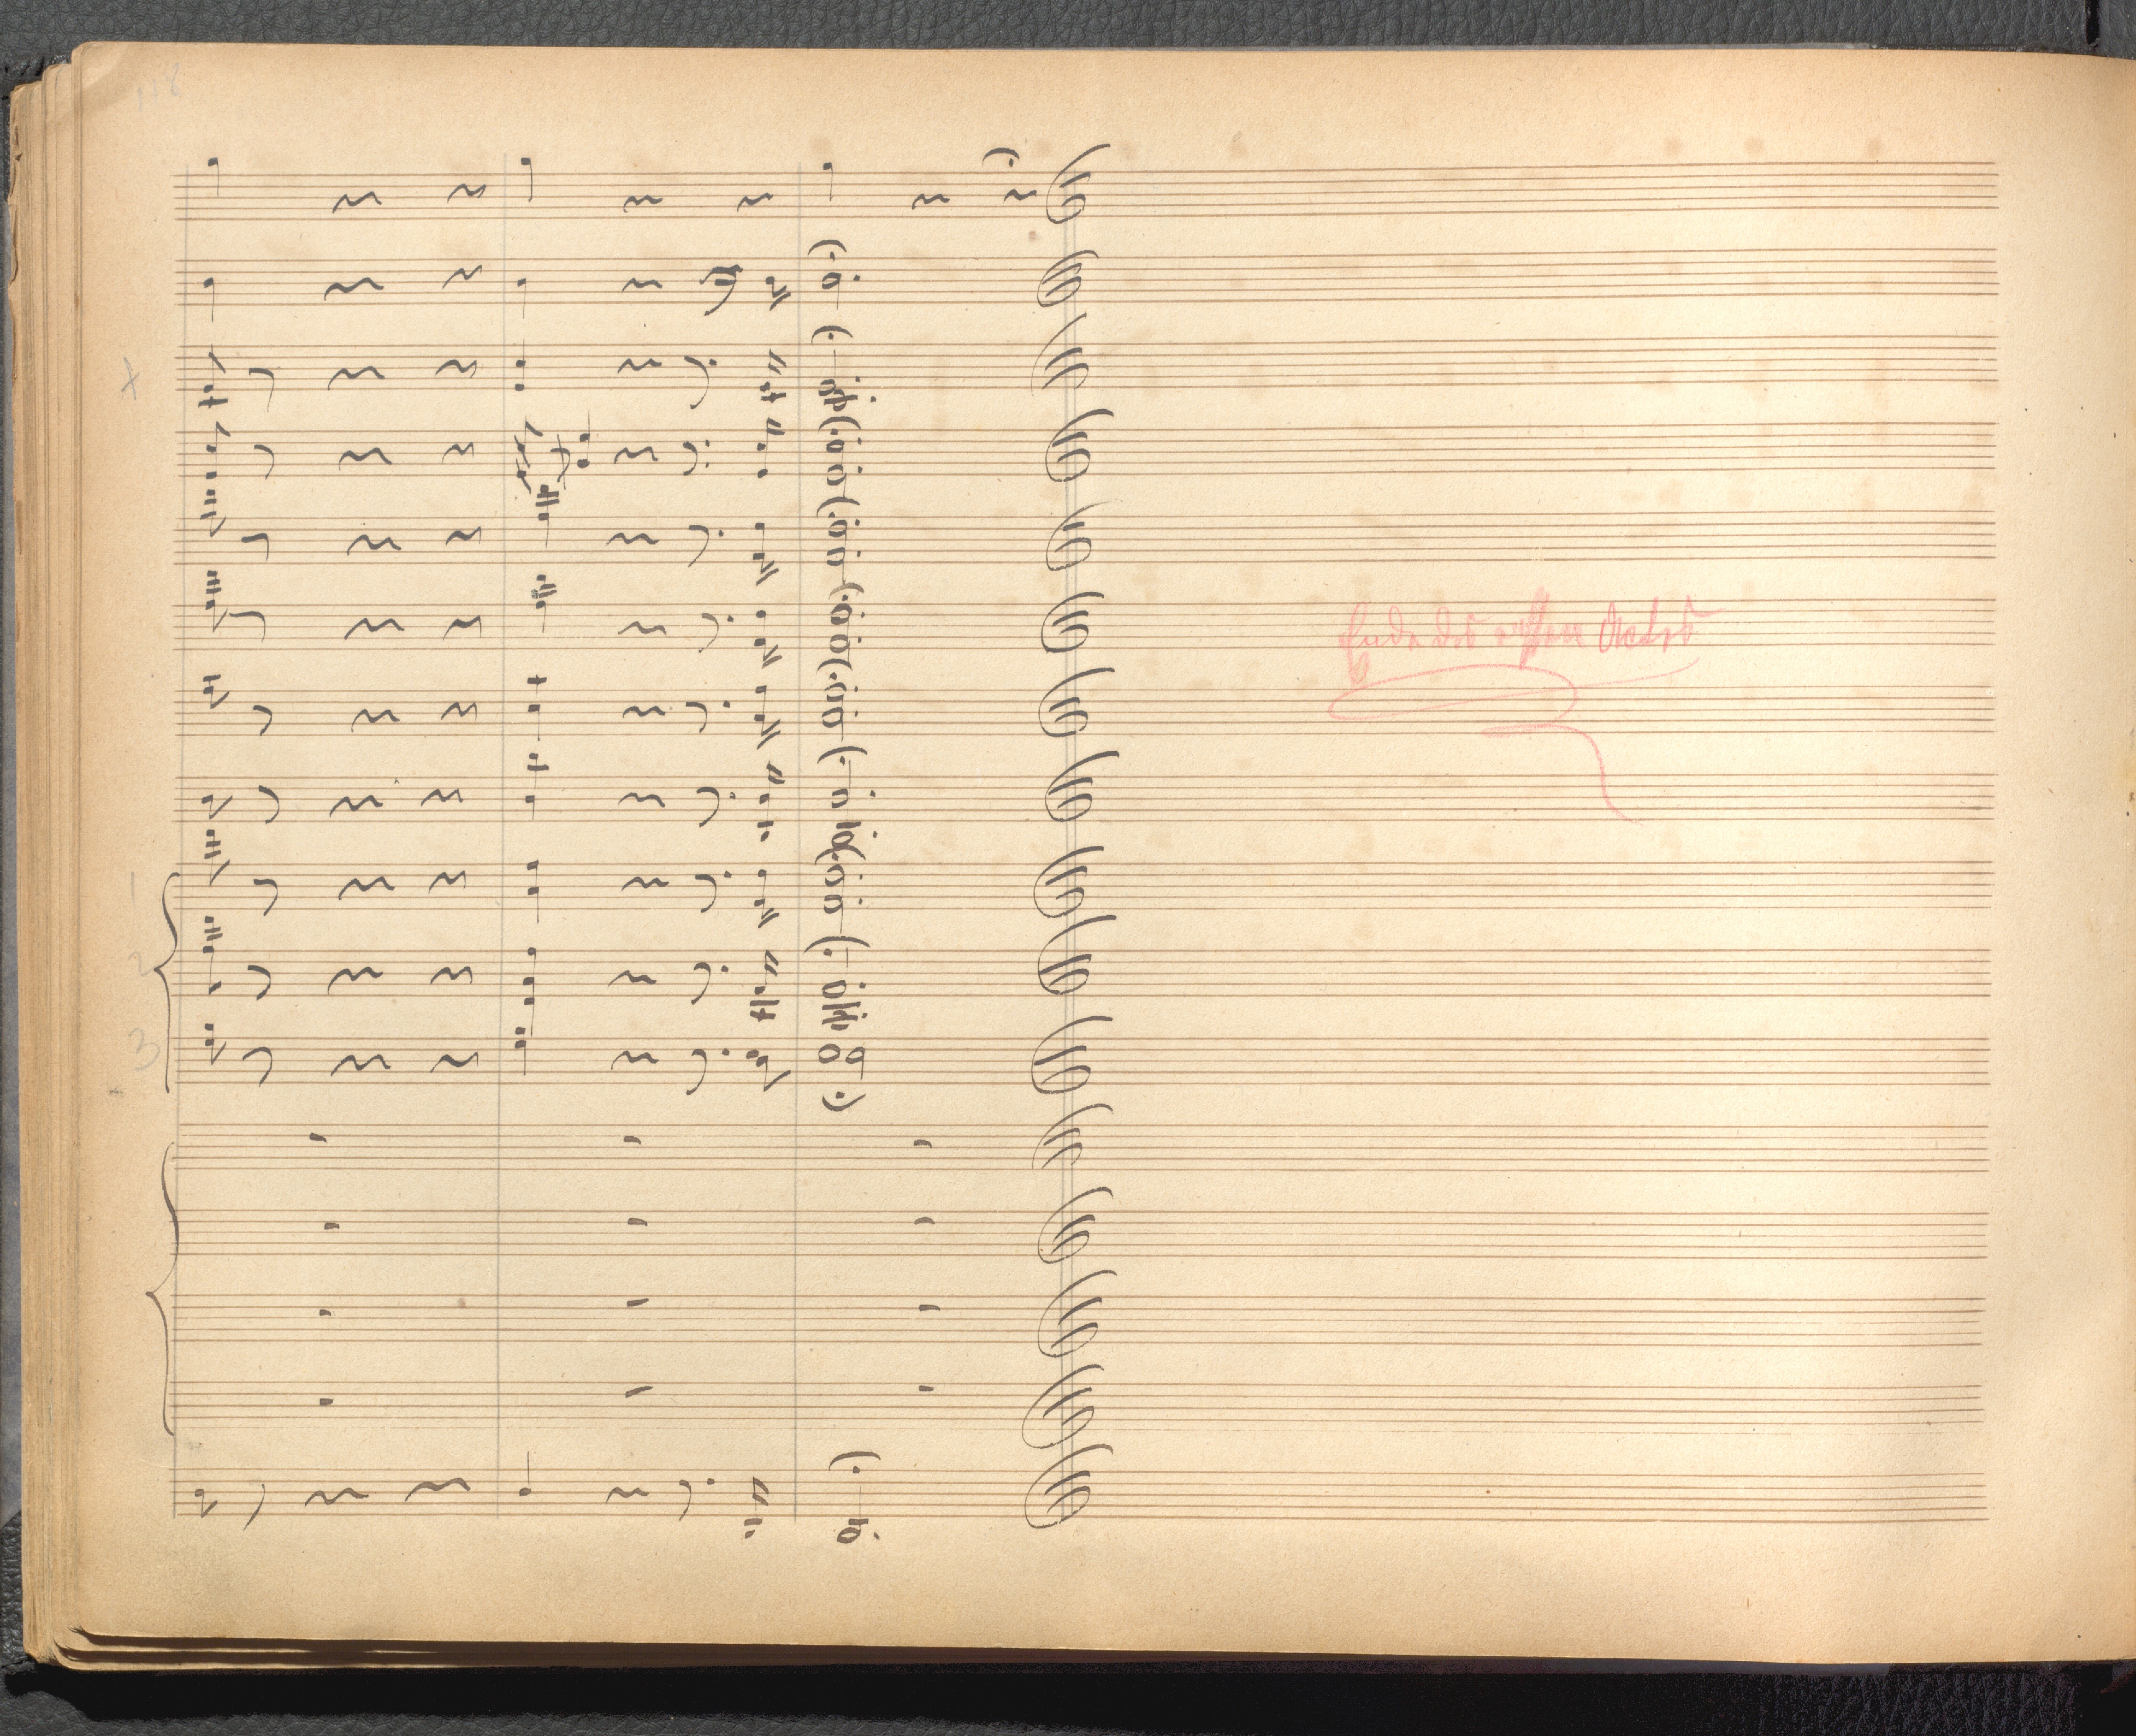 118
1
2
3
Ende des ersten Actes